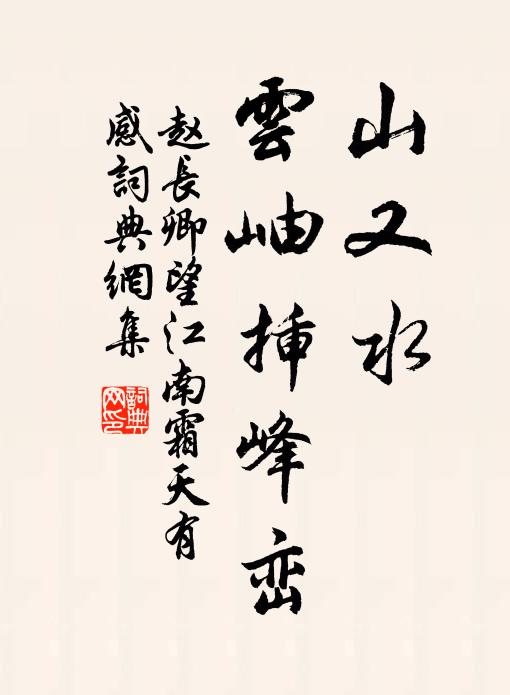 山又水
雲岫插峰峦
赵長卿望江南霜天有
感詞典網集
詞典
网印